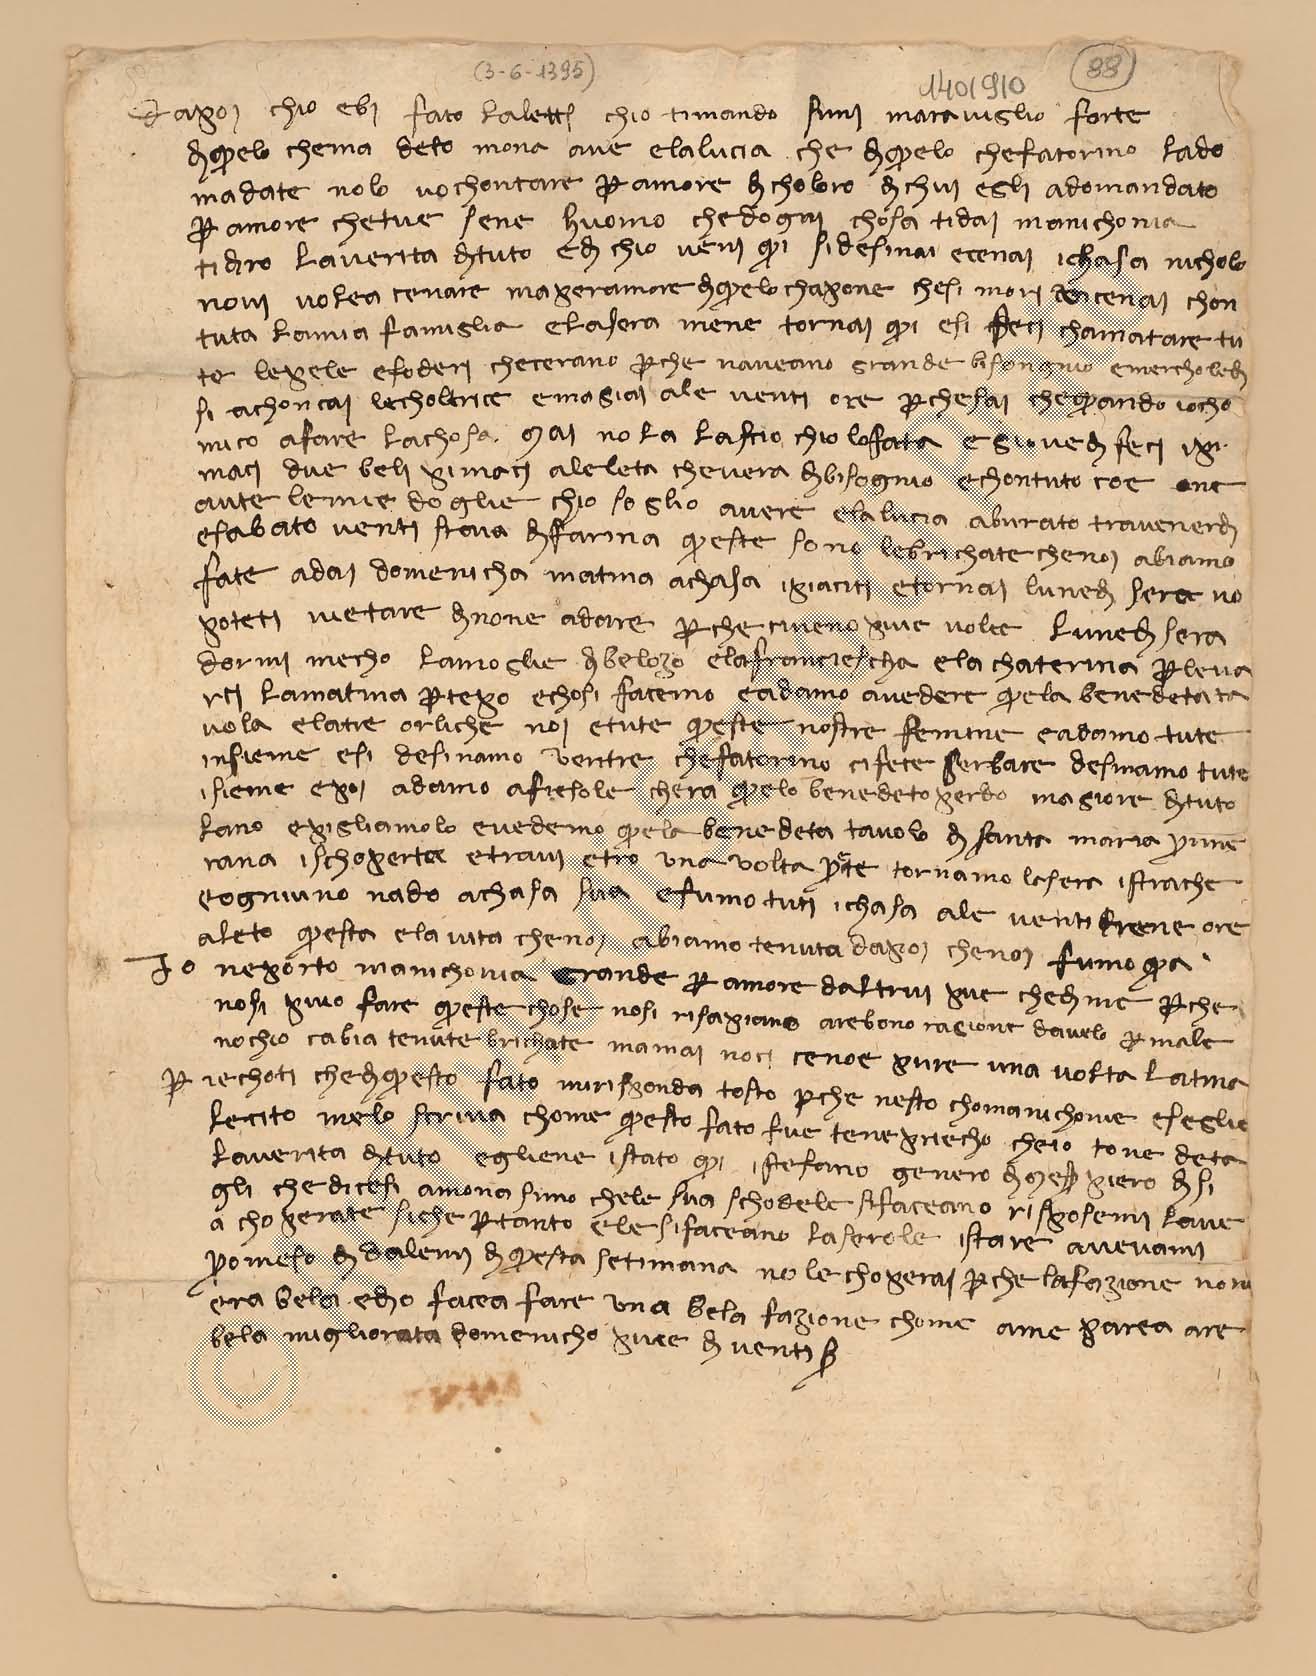 (3-6-1395)
1401910
88
dapoi chio ebi fato laletta chio timando suni maraviglio forte
diquelo chema deto mona ave elalucia che diquelo chefatorino lado
madate nolo vochontare per amore di choloro dichui egli adomandato
per amore chetue sene huomo chedogni chosa tidai manichonia
tidiro laverita dituto edi chio veni qui sidesinai ecenai ichasa nicholo
novi volea cenare maperamore diquelo chapone chesi mori cenai chon
tuta lamia famiglia elasera mene tornai qui esi feci chamatare tu
te lepele efoderi checerano perche naveano grande bisongnio emercholedi
si achoncai lecholtrice emasiai ale venti ore perchesai chequando iocho
mico afare lachosa mai nola lascio chio lofata e giovedi feci ipi
maci due beli pimaci aleleta chevera dibisognio echontuto coe
aute lemie doglie chio soglio avere elalucia aburato travenerdi
esabato venti staia difarina queste sono lebrichate chenoi abiamo
fate adai domenicha matina achasa ipiaciti etornai lunedi sera no
poteti vietare dinone adare perche civeno piue volte lunedi sera
dormi mecho lamoglie dibelozo elafranciescha ela chaterina perleva
rci lamatina pertepo echosi facemo eadamo avedere quela benedeta ta
vola elatre orliche noi etute queste nostre femine eadamo tute
insieme esi desinamo ventre chefatorino cifece serbare desinamo tute
isieme epoi adamo afiesole chera quelo benedeto perdo magiore dituto
lano epigliamolo evedemo quela benedeta tavola di santa maria prune
rana ischoperta etravi etro una volta parte tornamo lasera istrache
eogniuno nado achasa sua efumo tuti ichasa ale venti treene ore
aleto questa elavita chenoi abiamo tenuta dapoi chenoi fumo qua
Io neporto manichonia grande per amore daltrui piue chedime perche
nosi piuo fare queste chose nosi risapiano arebono ragione davelo per male
nochio cabia tenute brichate mamai noci cenoe pure una volta latina
per iechoti chediquesto fato mirisponda tosto perche nesto chomanichonie esegli
lecito melo scriva chome questo fato fue tenepriecho cheio tone deta
laverita dituto egliene istato qui istefano genero di meser piero disi
gli chedicesi amona simo chele sua schodele sifaceano risposemi lave
a choperate siche pertanto ele sifaceano lascole istare avevami
promeso didalemi diquesta setimana nole choperai perche lafazione noni
era bela edio facea fare una bela fazione chome ame parea are
bela migliorata domenicho piue di venti s